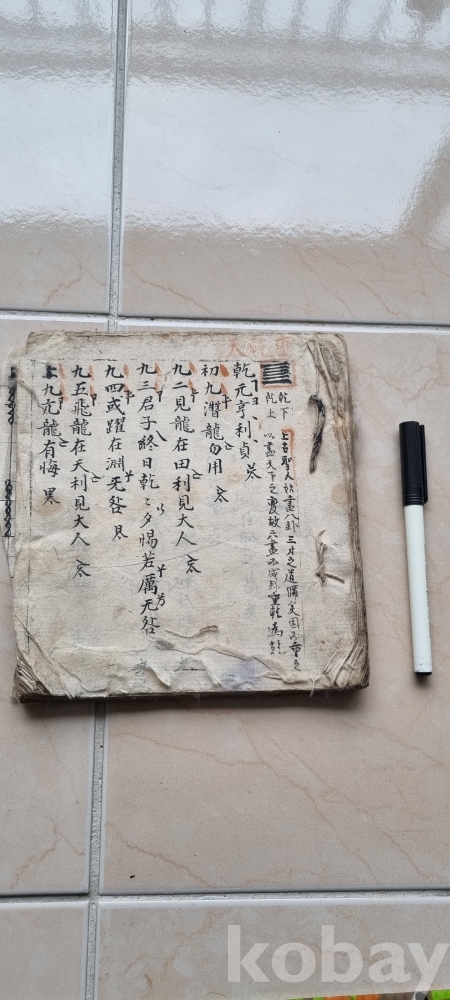 乾下
乾上
上古聖人始畫八卦三才之道備矣因而重之
以盡天下之變故六畫而成卦重乾為乾
乾元亨利貞
初九潛龍勿用
九二見龍在田利見大人
九三君子終日乾〻夕惕若厲无咎
九四或躍在淵无咎
九五飛龍在天利見大人
上九亢龍有悔
kobay